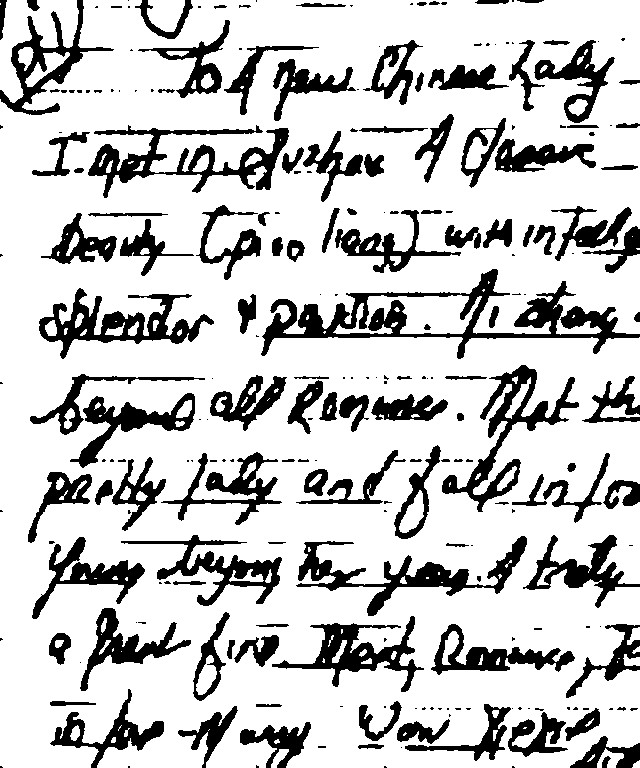 To A New Chinese Lady
I met in A Classic
beauty (piao liang) with
splendor & passion. Ai zhang
beyond all Romance. Met
pretty lady and fall in
young beyond her years. A truly
a great find. Meet, Romance,
in love Marry Wow